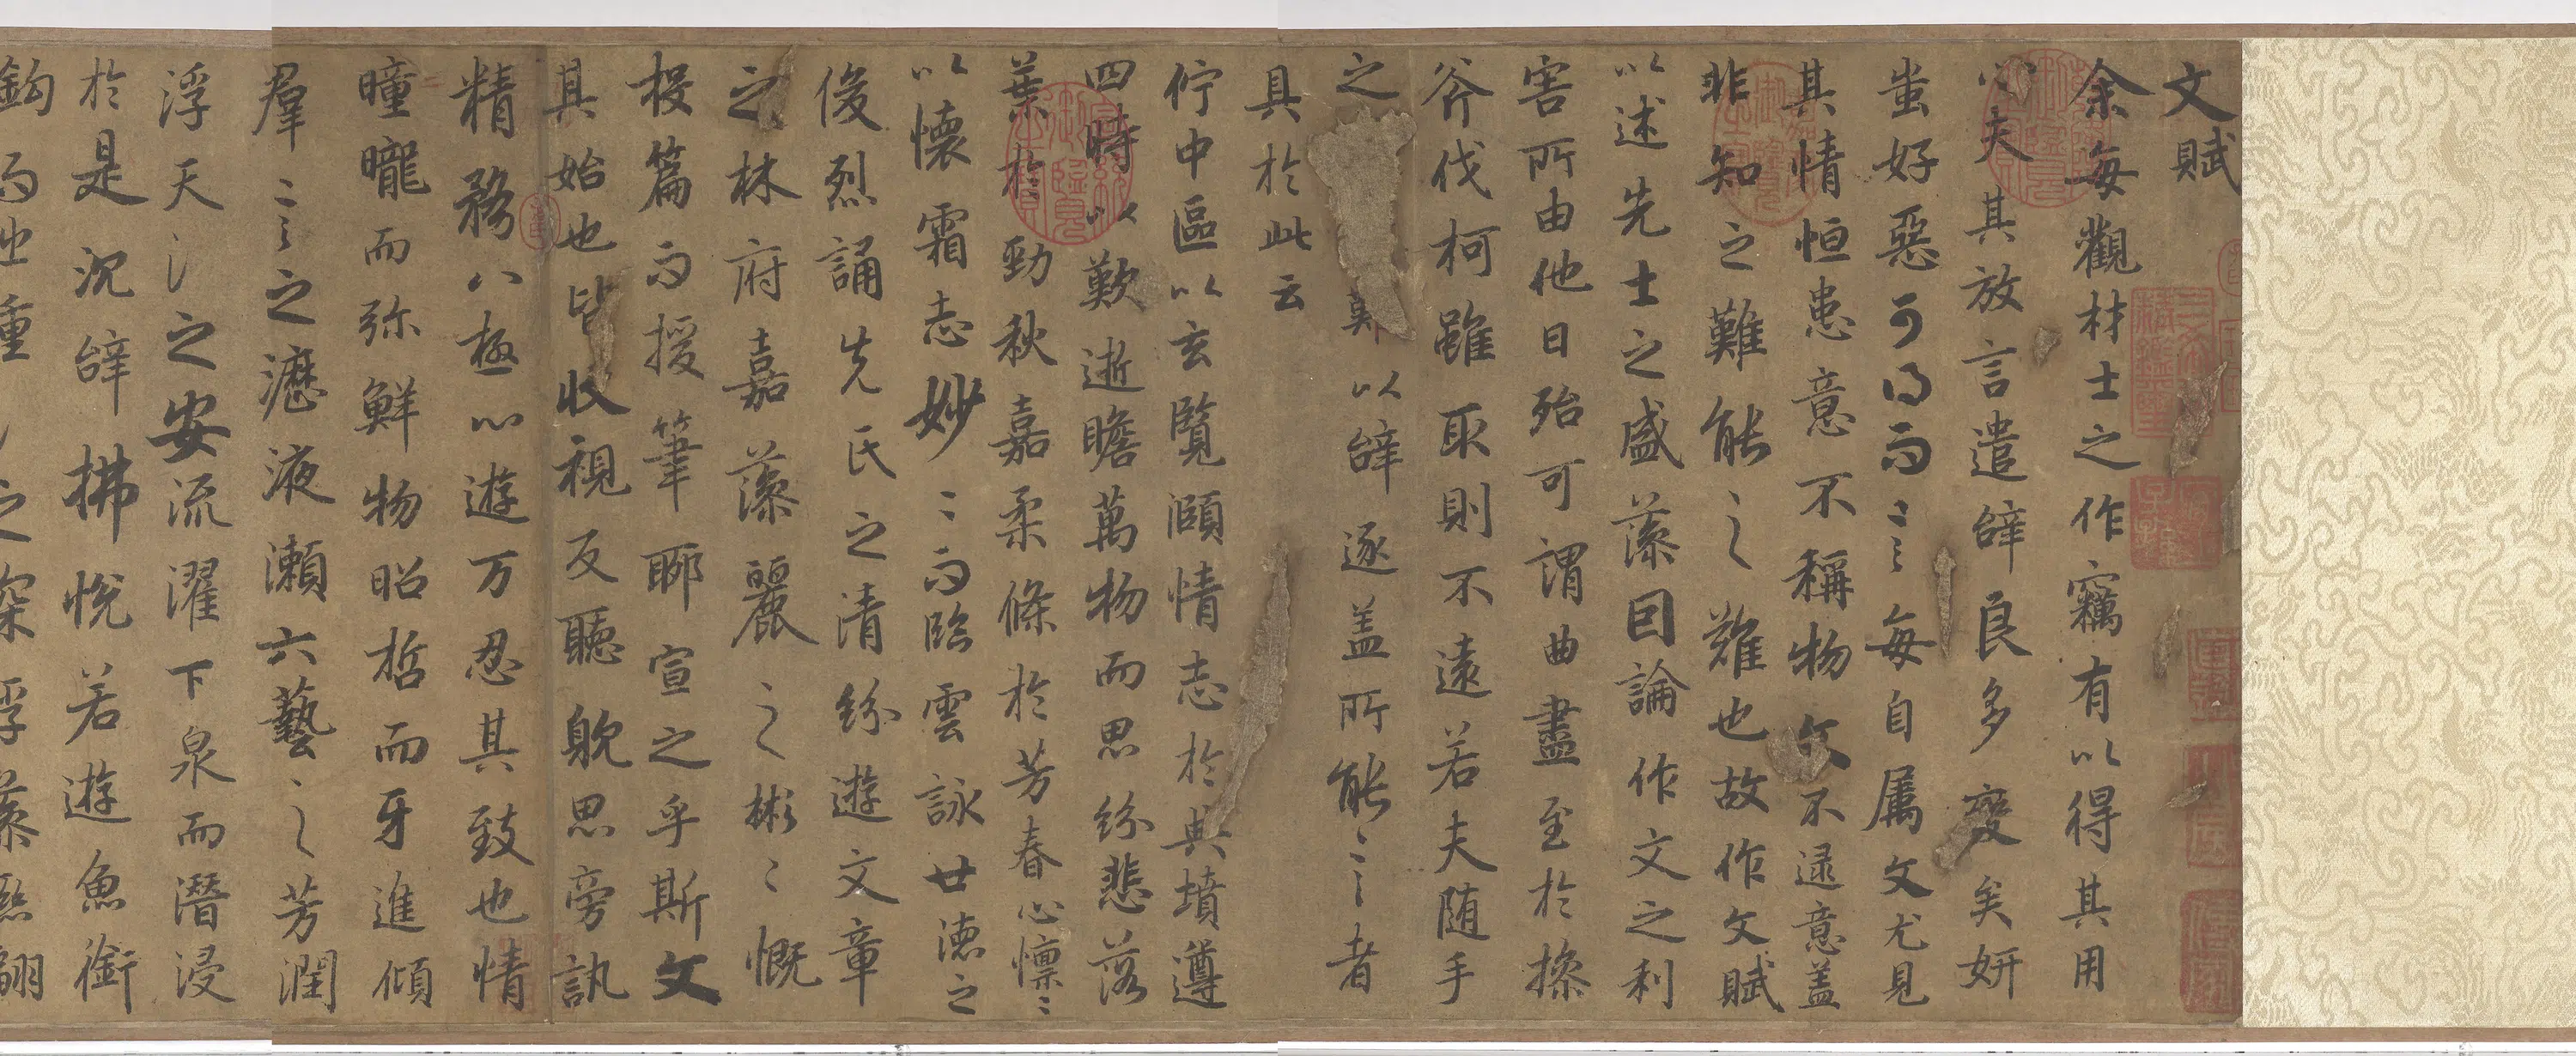 文賦
余每觀材士之作竊有以得其用
心夫其放言遣辝良多變矣妍
蚩好惡可得而言每自屬文尤見
其情恒患意不稱物文不逮意盖
非知之難能之難也故作文賦
以述先士之盛藻因論作文之利
害所由他日殆可謂曲盡至於操
斧伐柯雖取則不遠若夫随手
之難以辝逐盖所能言者
具於此云
佇中區以玄覽頤情志於典墳遵
四時以歎逝瞻萬物而思紛悲落
葉於勁秋嘉柔條於芳春心懍〻
以懷霜志妙〻而臨雲詠世德之
俊烈誦先民之清紛遊文章
之林府嘉藻麗之彬〻慨
投篇而援筆聊宣之乎斯文
其始也皆收視反聽躭思旁訊
精騖八極心遊万忍其致也情
曈曨而弥鮮物昭晢而牙進傾
羣言之瀝液漱六藝之芳潤
浮天淵之安流濯下泉而潛浸
於是沉辝拂悅若遊魚銜
鈎而出重之深浮藻聯翩